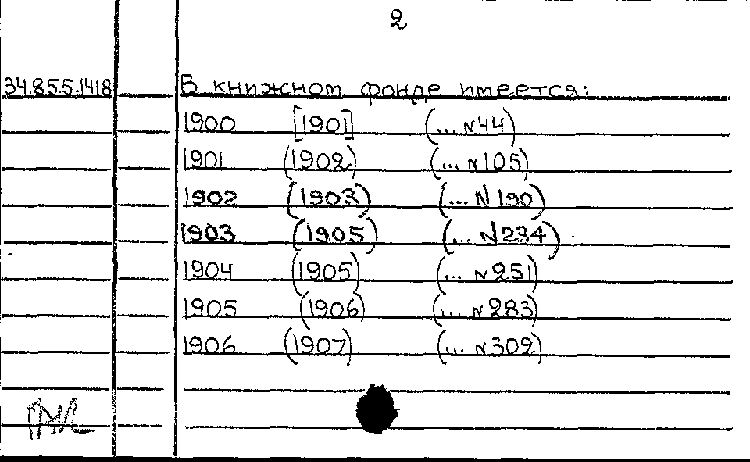 2
34.85.5.1418 В книжном фонде имеется:
1900 [1901] (... N44)
1901 (1902) (... N105)
1902 (1903) (... N190)
1903 (1905) (... N234)
1904 (1905) (... N251)
1905 (1906) (... N283)
1906 (1907) (... N309)